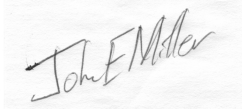 John E Miller